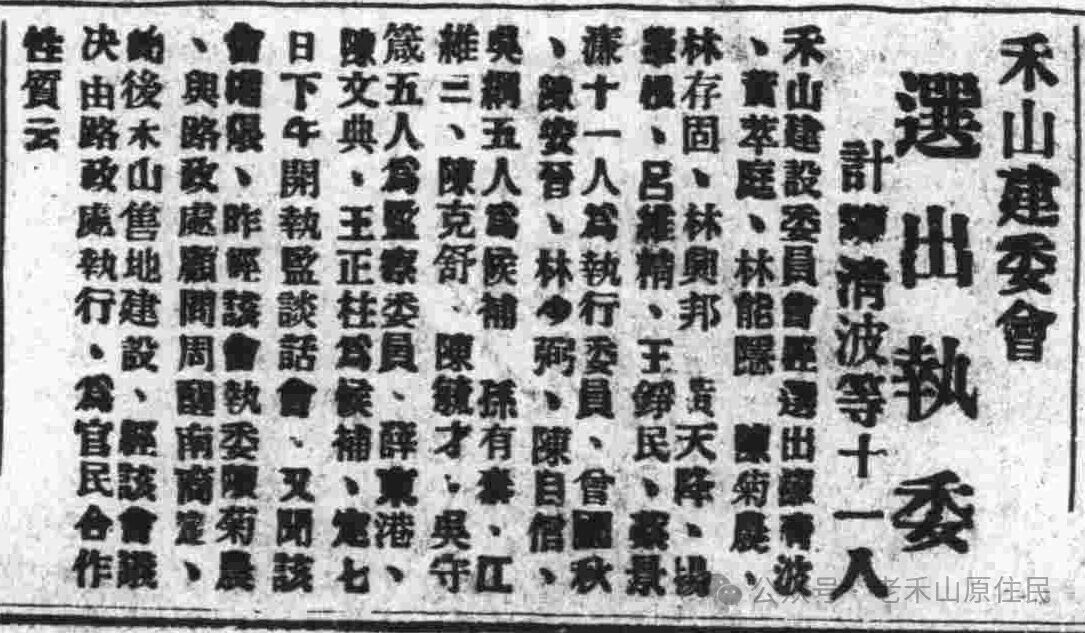 禾山建委會
選出執委
計陳清波等十一人
禾山建設委員會經選出陳清波
、黃萃庭、林能隱　陳菊農、
林存固、林興邦　黃天降、湯
、呂維精、王錚民、蔡景
濂十一人為執行委員、曾國秋
、歐安晉、林今弼、陳自信、
吳綱五人為候補　孫有、江
維二、陳克舒、陳毓才、吳守
箴五人為監察委員、薛東港、
陳文典、王正柱為候補、定七
日下午開執監談話會、又聞該
會、昨經該會執委陳菊農
、與路政處顧問周醒南商定、
此後禾山售地建設、經該會議
決由路政處執行、為官民合作
性質云
公众号·老禾山原住民